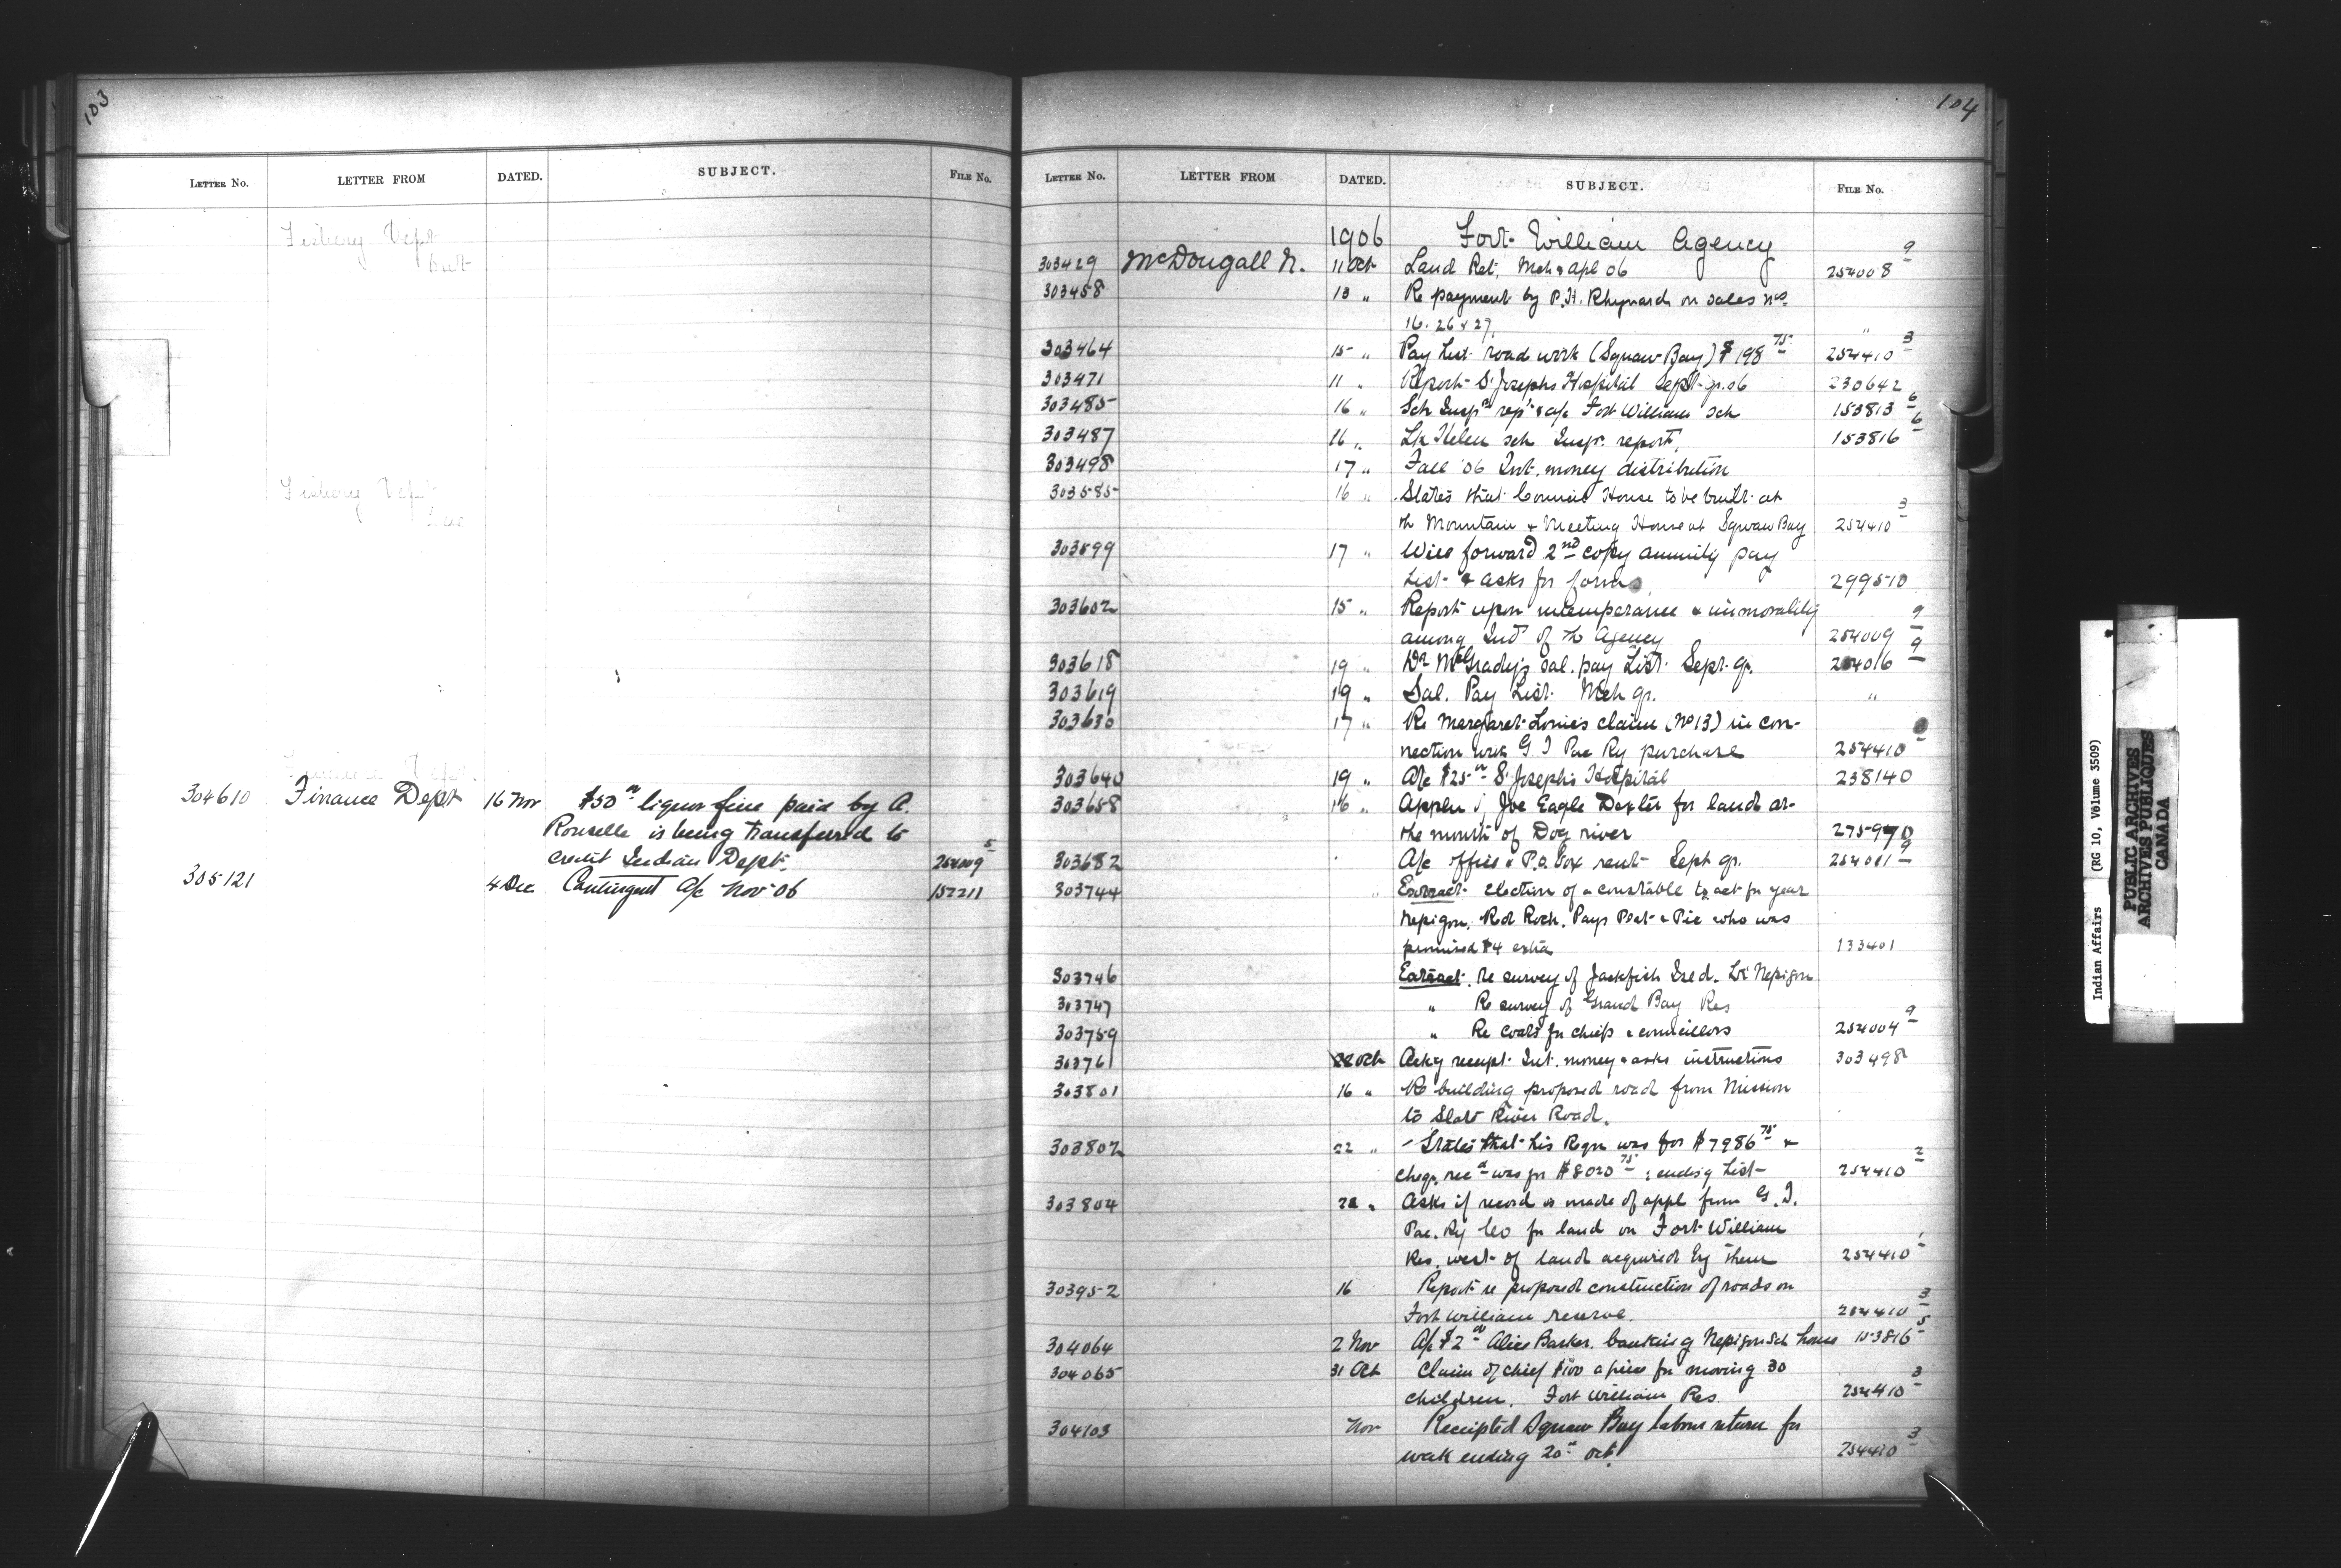 103
LETTER NO. LETTER FROM DATED. SUBJECT. FILE NO.
Fishery Dept
Fishery Dept
304610 Finance Dept 16 Nov $50 liquor fine paid by A.
Rouselle is being transferred to
credit Indian Dept. 254009 5
305121 4 Dec Contingent a/c Nov 06 157211
104
LETTER NO. LETTER FROM DATED. SUBJECT. FILE NO.
1906 Fort William Agency
303429 McDougall N. 11 Oct Land Ret. Mch & Apl 06 254008 9
303458 13 " Re payment by P.H. Rhynard on sales nos.
16. 26 & 27. "
303464 15 " Pay List road work (Squaw Bay) $198 75 254410 3
303471 11 " Report St Josephs Hospital Sept qr. 06 230642
303485 16 " Sch Inspr rept & a/c Fort William Sch 153813 6
303487 16 " Lk Helen sch Inspr. report, 153816 6
303498 17 " Fall '06 Int. money distribution
303585 16 " States that Council House to be built at
th Mountain & Meeting House at Squaw Bay 254410 3
303599 17 " Will forward 2nd copy annuity pay
List & asks for forms 299510
303602 15 " Report upon intemperance & immorality
among Inds of th Agency 254009 9
303618 19 " Dr McGrady's sal. pay List Sept. qr. 254016 9
303619 19 " Sal. Pay List Mch qr. "
303630 17 " Re Margaret Louie's claim (No 13) in con-
nection with G T Pac Ry purchase 254410
303640 19 " A/c $25 St Joseph's Hospital 238140
303658 16 " Appln of Joe Eagle Dexter for land at
the mouth of Dog river 275970
303682 A/c office & P.O. Box rent Sept qr. 254011 9
303744 " Extract election of a constable to act for year
Nepigon. Red Rock. Pays Plat & Pic who was
promised $4 extra 133401
303746 Extract. re survey of Jackfish Isld. Lk Nepigon
303747 " Re survey of Grand Bay Res
303759 " Re coats for chiefs & councillors 254004 9
303761 22 Oct Ackg receipt Int. money & asks instructions 303498
303801 16 " Re building proposed road from Mission
to Slate River Road.
303802 22 " States that his Reqn was for $7986 75 &
cheq. recd was for $8020 75: encls'g List 254410 2
303804 22 " Asks if record is made of appl from G. T.
Pac. Ry Co for land on Fort William
Res. west of land acquired by them 254410 1
303952 16 Report re proposed construction of roads on
Fort William reserve. 254410 3
304064 2 Nov A/c $2 Alice Barker. banking Nepigon Sch house 153816 5
304065 31 Oct Claim of chief $100 apiece for moving 30
children. Fort William Res 254410 3
304103 Nov Receipted Squaw Bay labour return for
week ending 20th Oct. 254410 3
Indian Affairs (RG 10, Volume 3509)
PUBLIC ARCHIVES
ARCHIVES PUBLIQUES
CANADA